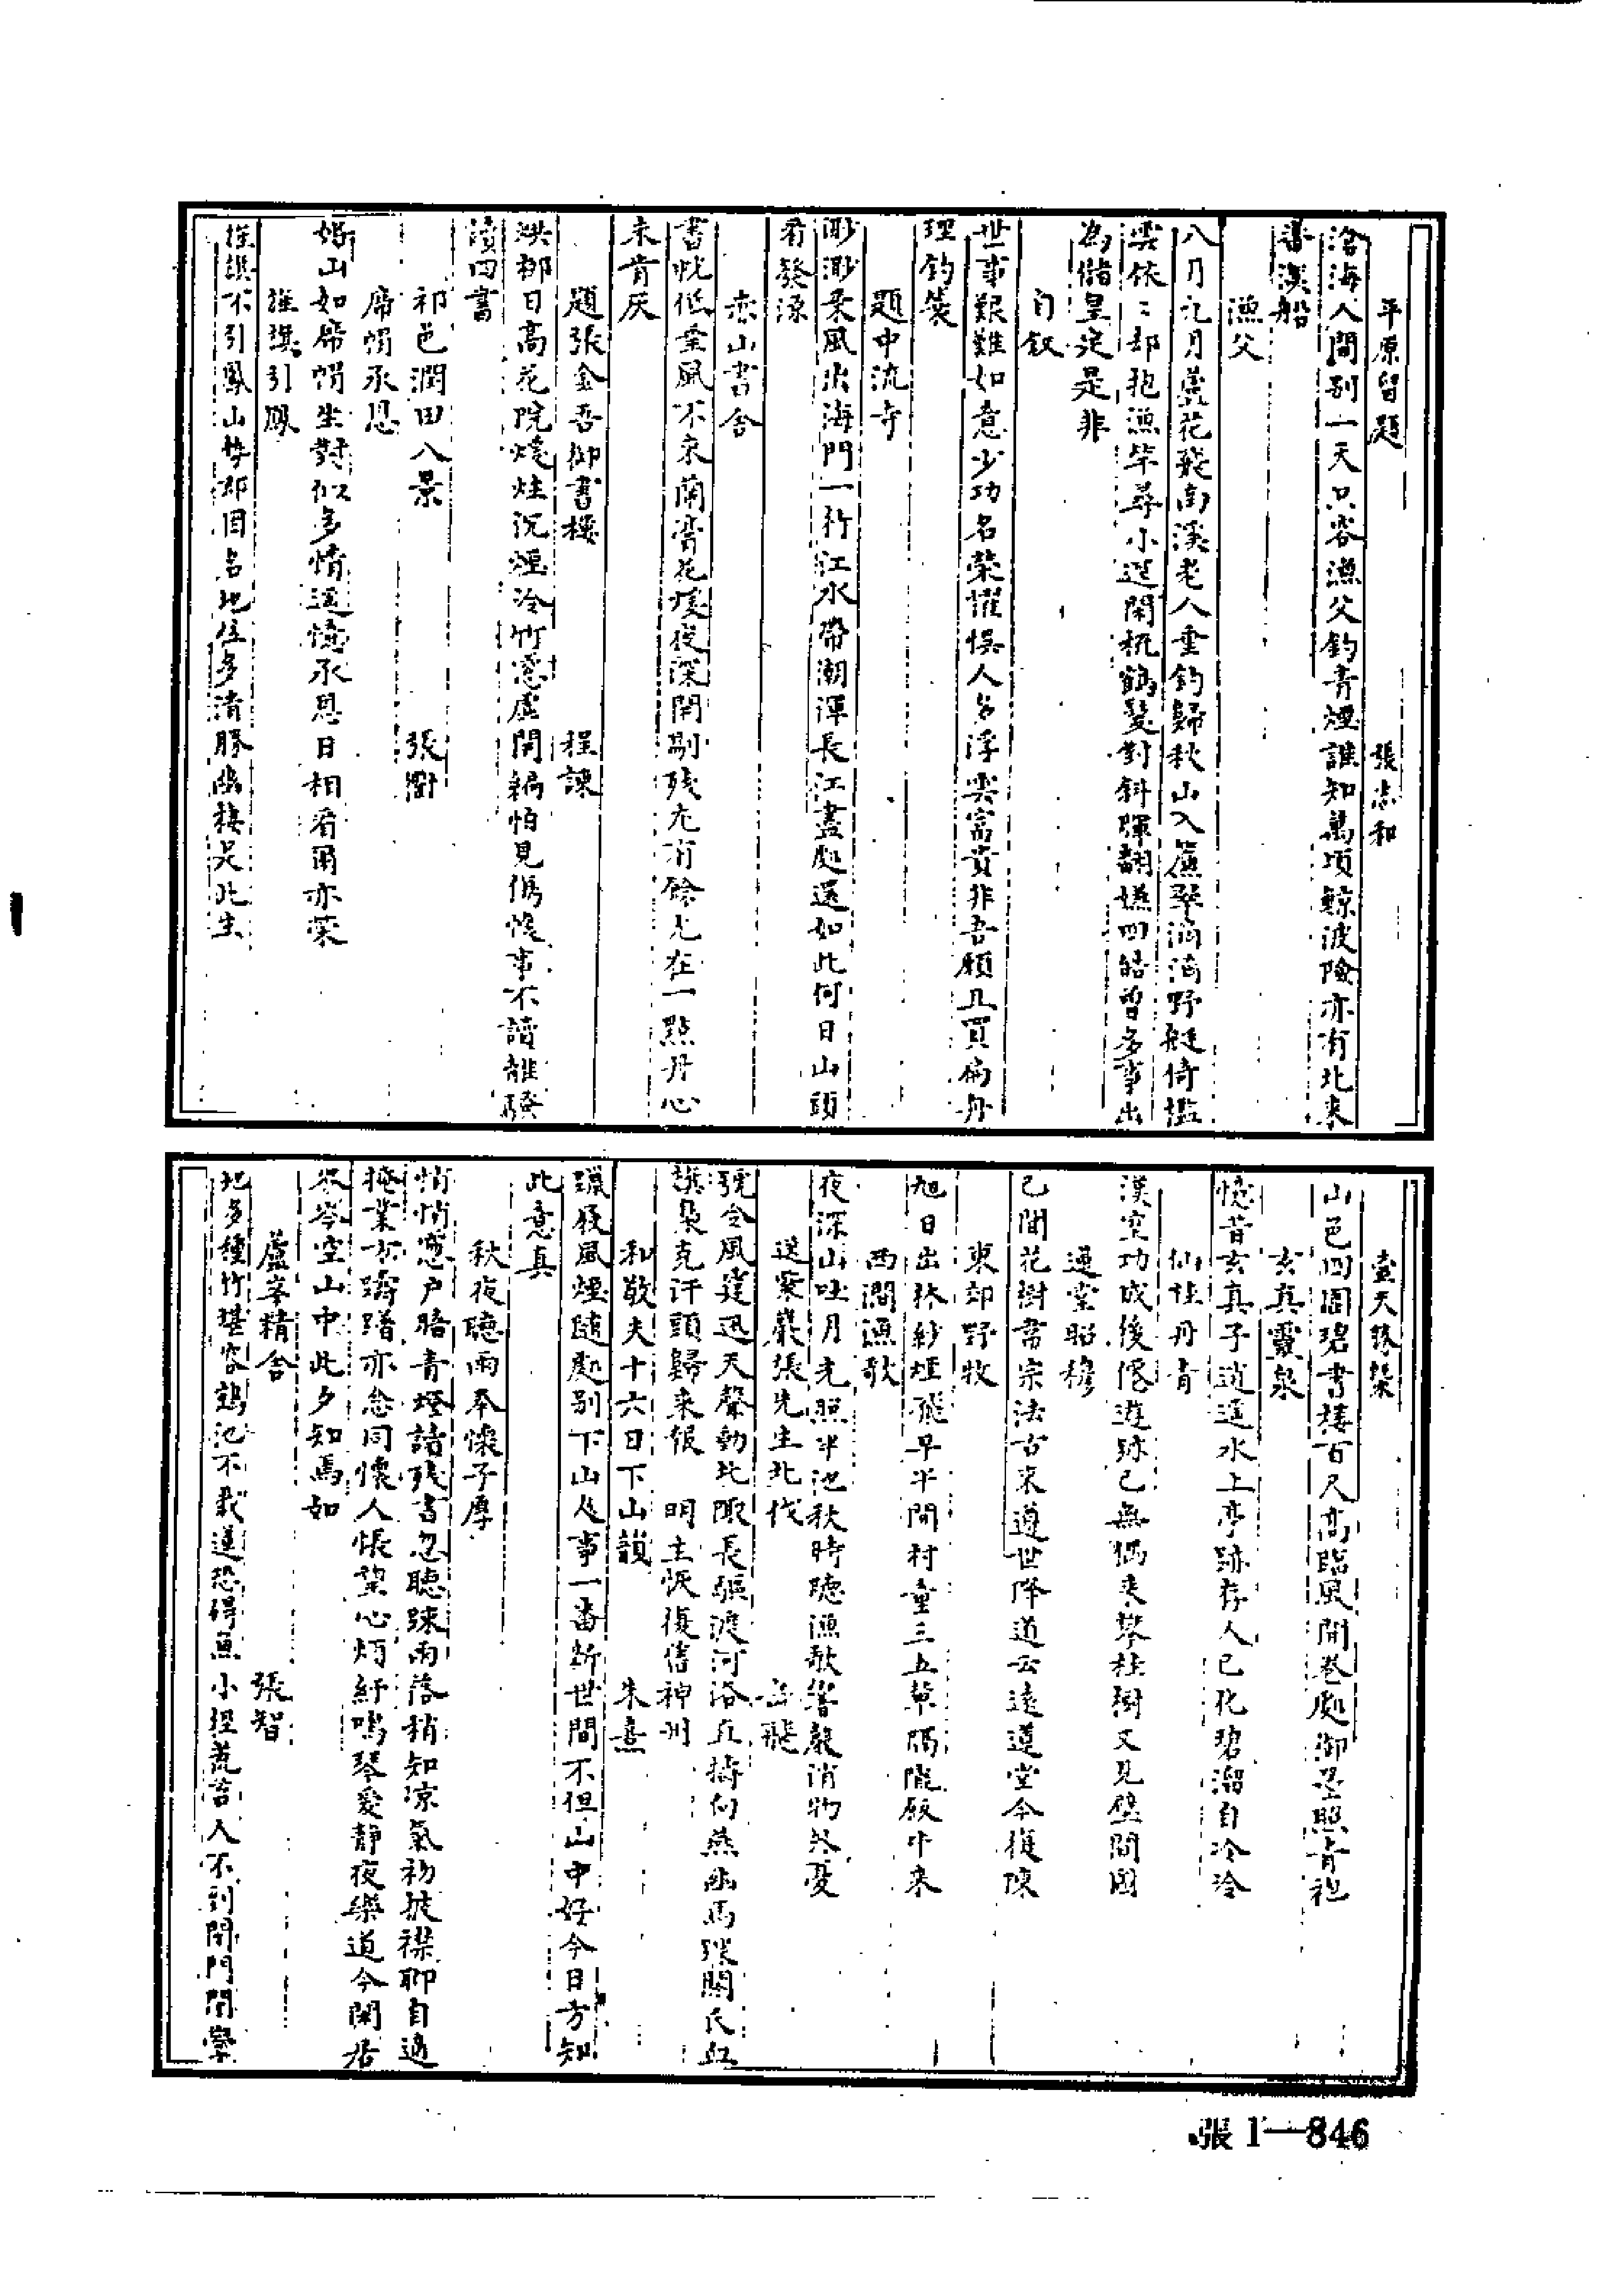 平原留題　張志和
滄海人間別一天只容漁父釣青煙誰知萬頃鯨波險亦有北来
苕溪船
漁父
八月九月蘆花飛南溪老人垂釣歸秋山入簾翠滴滴野艇倚檻
雲依〻却把漁竿尋小逕閑梳鶴髮對斜暉翻嫌四皓曾多事出
為儲皇定是非
自叙
世事艱難如意少功名榮耀悮人多浮雲富貴非吾願且買扁舟
理釣蓑
題中流寺
渺渺乘風出海門一行江水帶潮渾長江盡処還如此何日山頭
看發源
赤山書舍
書帙低垂風不来蘭膏花煖夜深開剔残尤有餘光在一點丹心
未肯灰
題張金吾御書樓　程諫
洪都日高花院燒炷沉煙冷竹窓虛開編怕見傷懷事不讀離騷
讀四書
祁邑潤田八景　張
席帽承恩
姤山如席帽生對似多情遥憶承恩日相看爾亦榮
引鳳
不引鳳山勢却因名地位多清勝幽棲足此生
臺天
山色四圍碧書樓百尺高臨風開卷處御墨照青袍
玄真靈泉
憶昔玄真子逍遥水上亭跡存人已化碧溜自泠泠
仙 丹青
漢室功成後僊遊跡已無偶来攀桂樹又見壁間圖
遵堂昭穆
已聞花樹 宗法古来遵世降道云遠遵堂今復陳
東郊野牧
旭日出林紗煙飛早半間村童三五輩隔隴 牛来
西澗漁歌
夜深山吐月光照半池秋時聴漁歌 嚴消物外憂
送 巖張先生北伐　岳飛
號令風霆迅天聲動北陬長驅渡河洛直擣向燕幽馬蹀閼氏血
旗梟克汗頭歸来報　明主恢復舊神州
和敬夫十六日下山韻　朱熹
風煙随処別下山人事一番新世間不但山中好今日方知
此意真
秋夜聴雨奉懷子厚
悄悄窓户暗青燈讀残書忽聴踈雨落稍知涼氣初披襟聊自適
掩業方躊躇亦念同懷人悵望心煩紆鳴琴愛静夜樂道今閑居
岑空山中此夕知焉如
蘆峯精舍　張智
地多種竹堪容鶴池不栽蓮恐碍魚小徑荒苔人不到閉門閒
張1—846